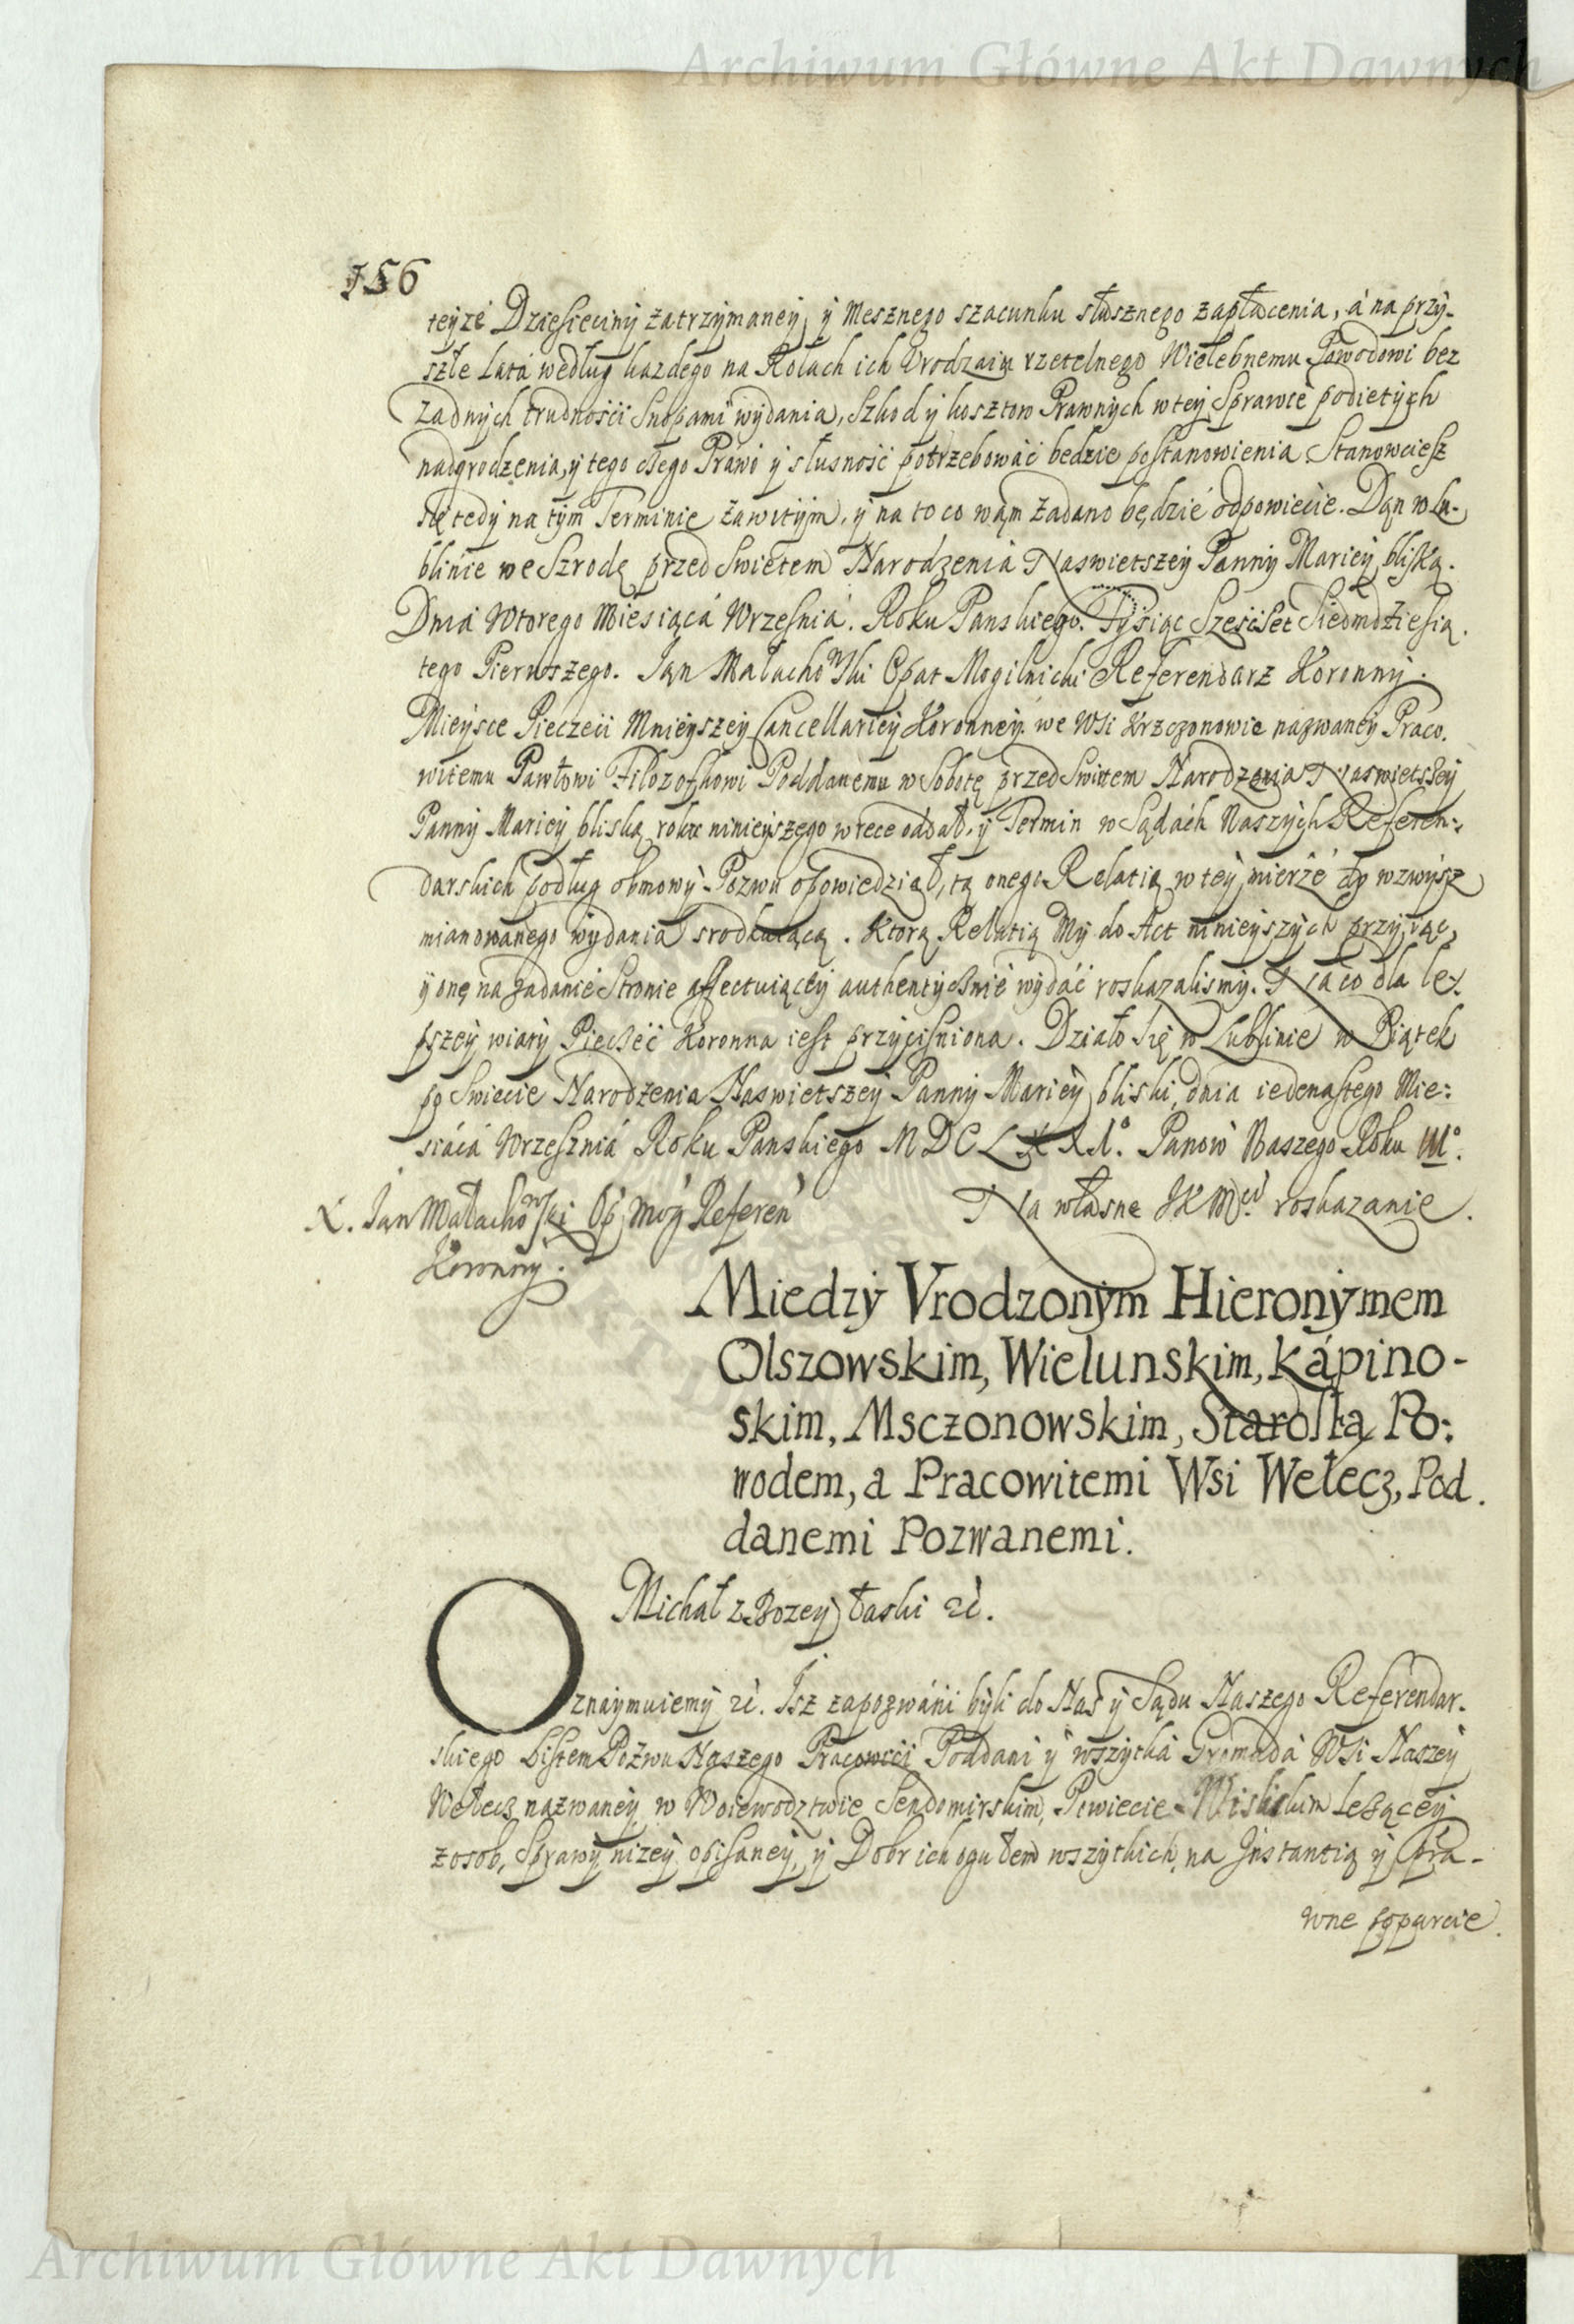 Archiwum Główne Akt Dawnych
156
teÿze Dziesieciny zatrzymaney, y Mesznego szacunku słusznego zapłacenia, á na przy-
szłe Lata według kazdego na Rolach ich Vrodzaiu rzetelnego Wielebnemu Powodowi bez
zadnych trudnosci Snopami wydania, Szkod y kosztow Prawnych w tey Sprawie podietych
nadgrodzenia, y tego Prawo y słusnosć potrzebowáć bedzie postanowienia. Stanowciesz
się tedy na tym Terminie zawitym, y na to co wąm zadano będzie odpowiecie. Dąn w Lu-
blinie we Szrodę przed Swietem Narodzenia Naswietszey Panny Mariey bliską.
Dnia Wtorego Miesiącá Wrzesniá. Roku Panskiego. Tysiąc Szescset Siedmdziesią.
tego Pierwszego. Ján Małachowski Opat Mogilnicki Referendarz Koronny.
Mieysce Pieczeci Mnieyszey Cancellariey Koronney. we Wsi Krzczonowie nazwaney Praco.
witemu Pawłowi Filozofkowi Poddanemu w Sobotę przed Swietem Narodzenia Naswietszey
Panny Mariey bliską rokи ninieyszego w rece oddał, y Termin w Sądách Naszych Referen:
darskich podług obmowy Pozwu opowiedział, tą onego Relatią w tey mierze do wzwysz
mianowanego wydania srodkuiącą. Ktorą Relatią My do Act ninieyszych przyiąc,
y onę na ządanie Stronie affectuiącey authentycznie wydáć roskazalismy. Na co dla le.
pszey wiary Pieczeć Koronna iest przycisniona. Działo się w Lublinie w Piątek
po Swiecie Narodzenia Naswietszey Panny Mariey bliski, dnia iedenastego Mie:
siącá Wrzeszniá Roku Panskiego MDCLXXI°. Panow̄ Naszego Roku III°.
X. Ján Małachowski Op Mog Referen
Na własne JKMci roskazanie.
Koronny.
Miedzy Vrodzonym Hieronymem
Olszowskim, Wielunskim, Kápino-
skim, Msczonowskim, Starostą Po:
wodem, a Pracowitemi Wsi Wełecz, Pod.
danemi Pozwanemi.
Michał z Bozey łaski &c.
Oznaymuiemy &c. Isz zapozwáni byli do Nas y Sądu Naszego Referendar.
skiego Listem Pozwu Naszego Pracowici Poddani y wszytká Gromadá Wsi Naszey
Wełecz nazwaney w Woiewodztwie Sendomirskim, Powiecie Wislickim Lezącey
z osob, Sprawy nizey opisaney, y Dobr ich ogułem wszytkich, na Instantią y Pra-
wne poparcie
Archiwum Główne Akt Dawnych